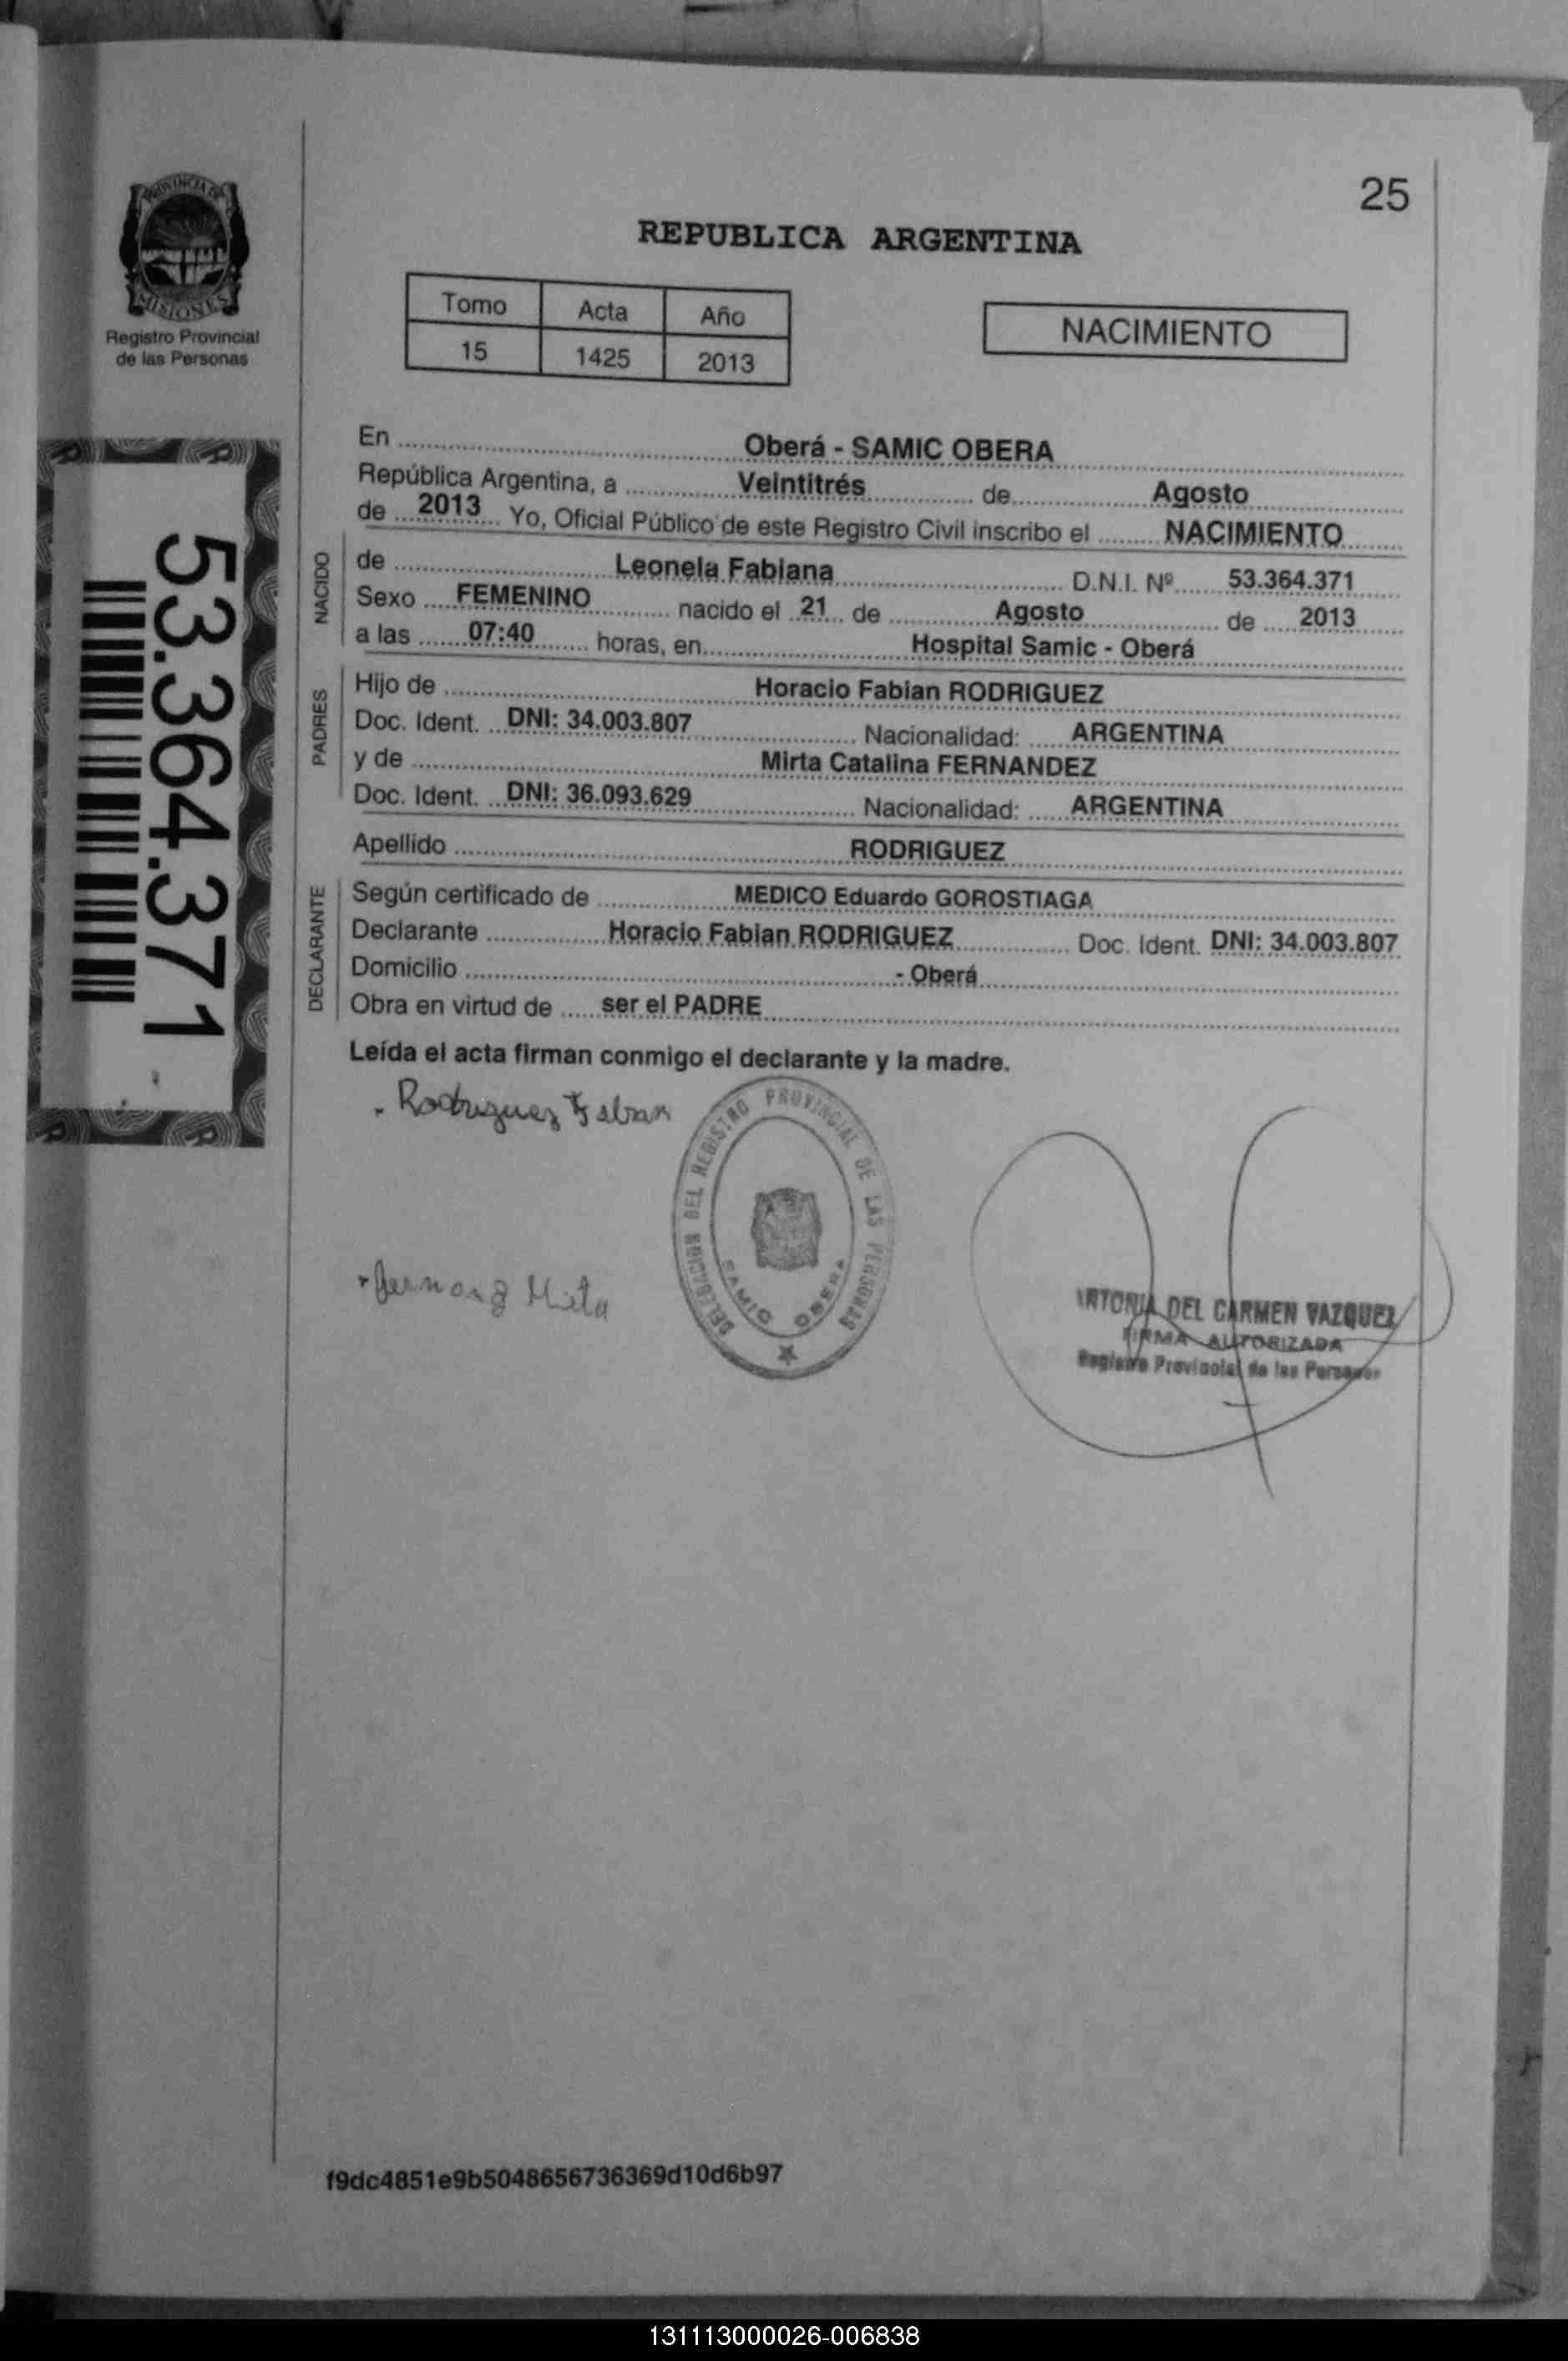 25
PROVINCIA DE
MISIONES
Registro Provincial
de las Personas
REPUBLICA ARGENTINA
Tomo Acta Año
15 1425 2013
NACIMIENTO
53.364.371
En Oberá - SAMIC OBERA
República Argentina, a Veintitrés de Agosto
de 2013 Yo, Oficial Público de este Registro Civil inscribo el NACIMIENTO
NACIDO
de Leonela Fabiana D.N.I. Nº 53.364.371
Sexo FEMENINO nacido el 21 de Agosto de 2013
a las 07:40 horas, en Hospital Samic - Oberá
PADRES
Hijo de Horacio Fabian RODRIGUEZ
Doc. Ident. DNI: 34.003.807 Nacionalidad: ARGENTINA
y de Mirta Catalina FERNANDEZ
Doc. Ident. DNI: 36.093.629 Nacionalidad: ARGENTINA
Apellido RODRIGUEZ
DECLARANTE
Según certificado de MEDICO Eduardo GOROSTIAGA
Declarante Horacio Fabian RODRIGUEZ Doc. Ident. DNI: 34.003.807
Domicilio - Oberá
Obra en virtud de ser el PADRE
Leída el acta firman conmigo el declarante y la madre.
Rodriguez Fabian
DELEGACION DEL REGISTRO PROVINCIAL DE LAS PERSONAS
SAMIC OBERA
Mirta
ANTONIA DEL CARMEN VAZQUEZ
FIRMA AUTORIZADA
Registro Provincial de las Personas
f9dc4851e9b5048656736369d10d6b97
131113000026-006838